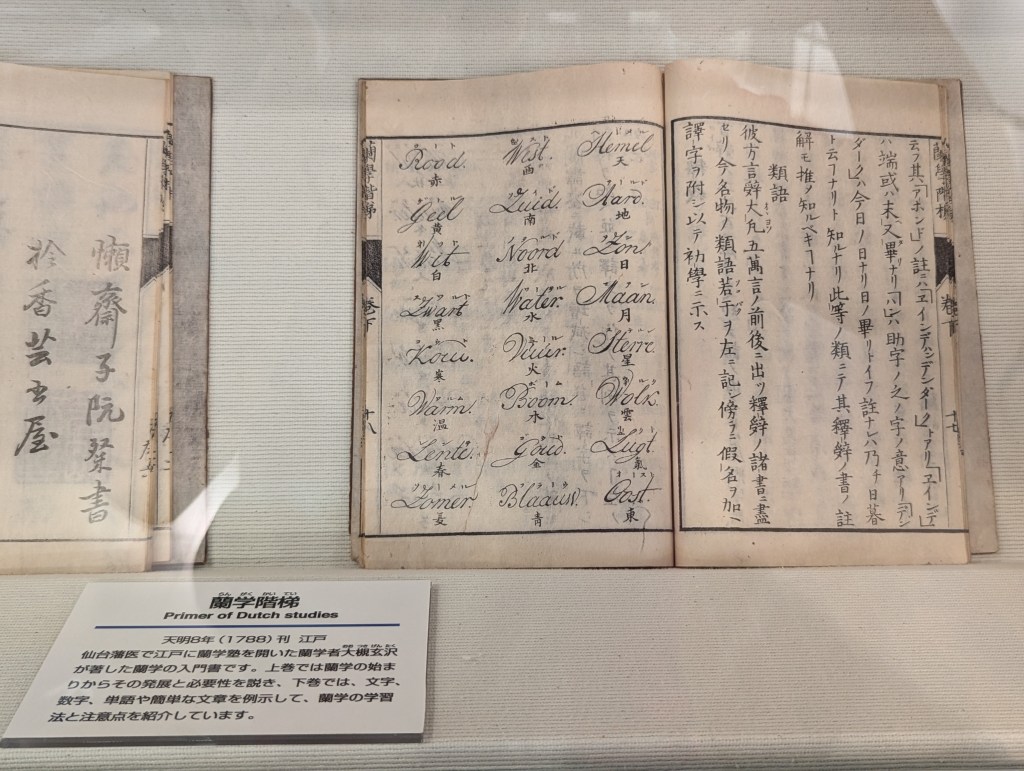 蘭學階梯
卷下
十七
云フ其「アホンド」ノ註ニハ「エインデハンデンダーク」トアリ「エインデ」
ハ端或ハ末又畢ナリ「ハン」ハ助字ノ之ノ字ノ意アリ「デン
ダーク」ハ今日ノ日ナリ日ノ畢リトイフ註ナレハ乃チ日暮
ト云フナリト知ルナリ此等ノ類ニテ其釋辭ノ書ノ註
解モ推テ知ルベキフナリ
類語
彼方言辭大凡五萬言ノ前後ニ出ツ釋辭ノ諸書ニ盡
セリ今名物ノ類語若干ヲ左ニ記シ傍ラニ假名ヲ加ヘ
譯字ヲ附シ以テ初學ニ示ス
Hemel
天
Aard.
地
Zon.
日
Maan.
月
Sterre.
星
Wolk.
雲
Lugt.
氣
Oost.
東
West.
西
Zuid.
南
Noord.
北
Water.
水
Vuur.
火
Boom.
木
Goud.
金
Blaauw.
青
Rood.
赤
Geel.
黄
Wit.
白
Zwart.
黒
Kouw.
寒
Warm.
温
Lente.
春
Zomer.
夏
蘭學階梯
卷下
十八
懶齋子阮琹書
於香芸書屋
らんがくかいてい
蘭学階梯
Primer of Dutch studies
天明8年（1788）刊 江戸
仙台藩医で江戸に蘭学塾を開いた蘭学者大槻玄沢
が著した蘭学の入門書です。上巻では蘭学の始ま
りからその発展と必要性を説き、下巻では、文字、
数字、単語や簡単な文章を例示して、蘭学の学習
法と注意点を紹介しています。